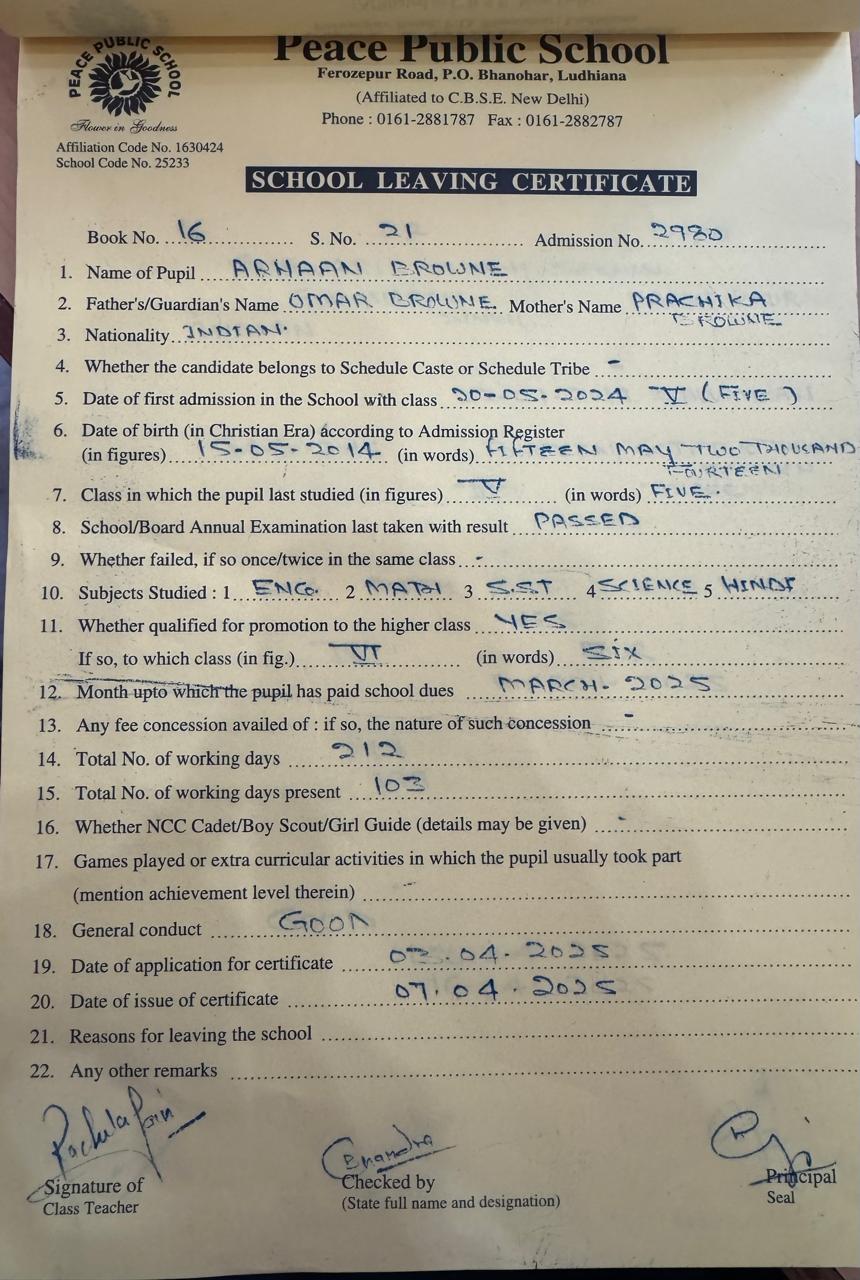 PEACE PUBLIC SCHOOL
Flower in Goodness
Affiliation Code No. 1630424
School Code No. 25233
Peace Public School
Ferozepur Road, P.O. Bhanohar, Ludhiana
(Affiliated to C.B.S.E. New Delhi)
Phone : 0161-2881787 Fax : 0161-2882787
SCHOOL LEAVING CERTIFICATE
Book No. 16 S. No. 21 Admission No. 2980
1. Name of Pupil ARHAAN BROWNE
2. Father's/Guardian's Name OMAR BROWNE Mother's Name PRACHIKA
BROWNE
3. Nationality INDIAN.
4. Whether the candidate belongs to Schedule Caste or Schedule Tribe -
5. Date of first admission in the School with class 20-05-2024 V (FIVE)
6. Date of birth (in Christian Era) according to Admission Register
(in figures) 15-05-2014 (in words) FIFTEEN MAY TWO THOUSAND
FOURTEEN
7. Class in which the pupil last studied (in figures) V (in words) FIVE.
8. School/Board Annual Examination last taken with result PASSED
9. Whether failed, if so once/twice in the same class -
10. Subjects Studied : 1 ENG. 2 MATH 3 S.S.T 4 SCIENCE 5 HINDI
11. Whether qualified for promotion to the higher class YES
If so, to which class (in fig.) VI (in words) SIX
12. Month upto which the pupil has paid school dues MARCH - 2025
13. Any fee concession availed of : if so, the nature of such concession -
14. Total No. of working days 212
15. Total No. of working days present 103
16. Whether NCC Cadet/Boy Scout/Girl Guide (details may be given) -
17. Games played or extra curricular activities in which the pupil usually took part
(mention achievement level therein) -
18. General conduct GOOD
19. Date of application for certificate .04.2025
20. Date of issue of certificate 07.04.2025
21. Reasons for leaving the school
22. Any other remarks
Signature of
Class Teacher
Checked by
(State full name and designation)
Principal
Seal